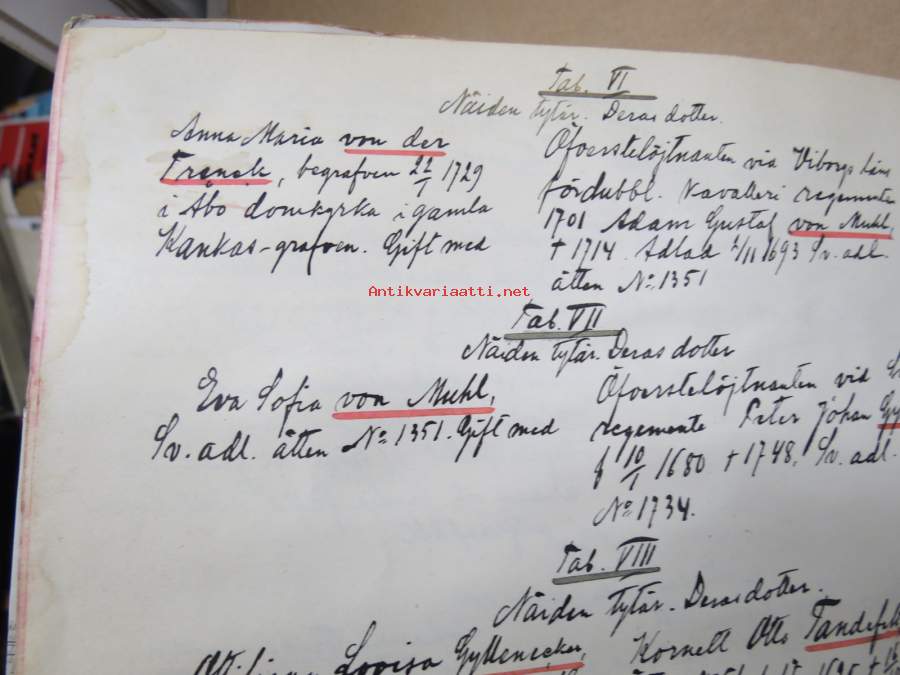 Tab. VI
Näiden tytär. Deras dotter.
Anna Maria von der
Trenck, begrafven 22/1 1729
i Åbo domkyrka i gamla
Kankas-grafven. Gift med
Öfverstelöjtnanten vid Viborgs läns
fördubbl. Kavalleri regemente
1701 Adam Gustaf von Muhl,
+ 1714. Adlad 2/11 1693 Sv. adl.
ätten No. 1351
Antikvariaatti.net
Tab. VII
Näiden tytär. Deras dotter
Eva Sofia von Muhl,
Sv. adl. ätten No 1351. Gift med
Öfverstelöjtnanten vid
regemente Peter Johan
f 10/1 1680 + 1748. Sv. adl.
No 1734.
Tab. VIII
Näiden tytär. Deras dotter.
Lovisa Gyllenecker,
Kornett Otto